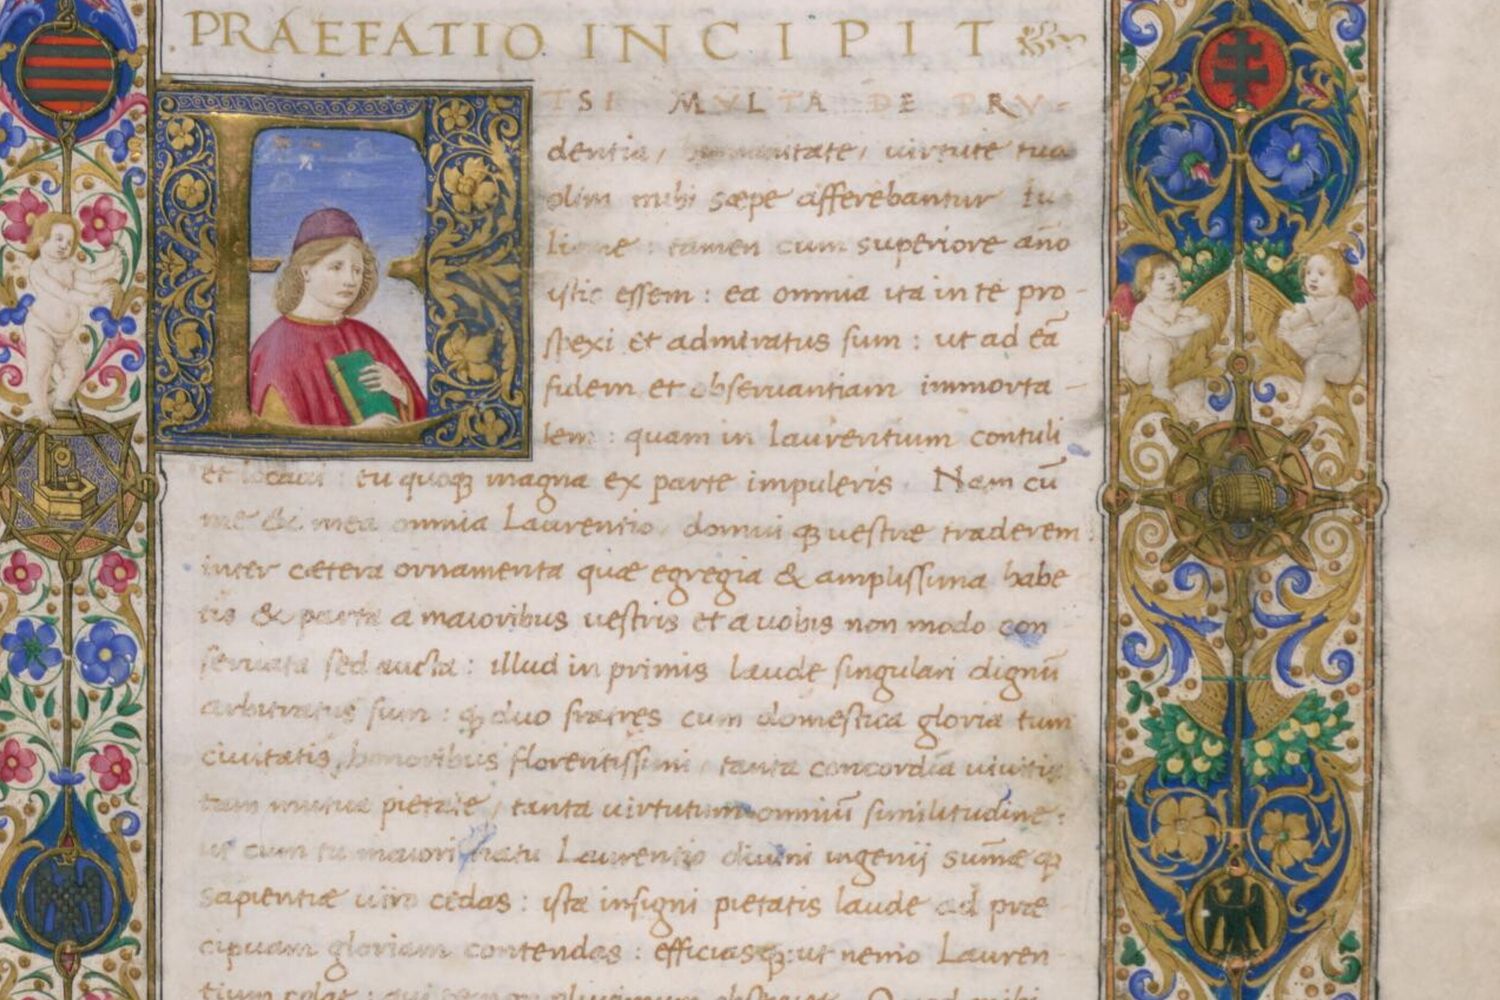 PRAEFATIO INCIPIT
ETSI MVLTA DE PRV=
dentia, humanitate, uirtute tua
olim mihi sæpe afferebantur Iu
liane : tamen cum superiore ãno
istic essem : ea omnia ita in te pro-
spexi et admiratus sum : ut ad eã
fidem et obseruantiam immorta-
lem : quam in Laurentium contuli
et locaui tu quoqꝫ magna ex parte impuleris. Nam cũ
me & mea omnia Laurentio, domui qꝫ uestræ traderem :
inter cætera ornamenta quæ egregia & amplissima habe
tis & parta a maioribus uestris et a uobis non modo con
seruata sed aucta : illud in primis laude singulari dignũ
arbitratus sum : qꝫ duo fratres cum domestica gloria tum
ciuitatis honoribus florentissimi tanta concordia uiuitis
tam mutua pietate, tanta uirtutum omniũ similitudine :
ut cum tu maiori natu Laurentio diuini ingenij sum̃æ qꝫ
sapientiæ uiro cedas : ista insigni pietatis laude ad præ-
cipuam gloriam contendas : efficiasqꝫ: ut nemo Lauren-
tium colat :